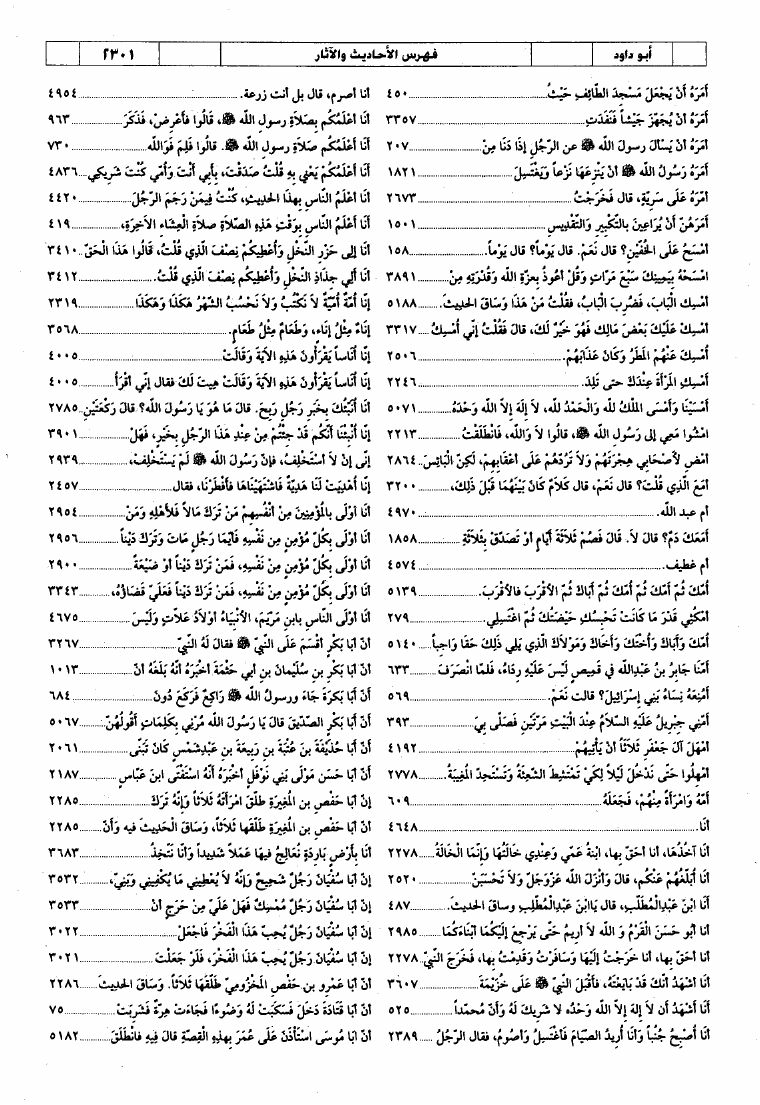 أبو داود
فهرس الأحاديث والآثار
٢٣٠١
أَمَرَهُ أَنْ يَجْعَلَ مَسْجِدَ الطَّائِفِ حَيْثُ ٤٥٠
أَمَرَهُ أَنْ يُجَهِّزَ جَيْشاً فَنَفَدَتِ ٣٣٥٧
أَمَرَهُ أَنْ يَسْأَلَ رسولَ الله ﷺ عن الرَّجُلِ إذَا دَنَا مِنْ ٢٠٧
أَمَرَهُ رَسُولُ الله ﷺ أَنْ يَنْزِعَهَا نَزْعاً وَيَغْتَسِلَ ١٨٢١
أَمَّرَهُ عَلَى سَرِيَّةٍ، قال فَخَرَجْتُ ٢٦٧٣
أَمَرَهُنَّ أَنْ يُرَاعِينَ بالتَّكْبِيرِ وَالتَّقْدِيسِ ١٥٠١
أَمْسَحُ عَلَى الْخُفَّيْنِ؟ قال نَعَمْ. قال يَوْماً؟ قال يَوْماً. ١٥٨
امْسَحْهُ بِيَمِينِكَ سَبْعَ مَرَّاتٍ وَقُلْ أعُوذُ بعِزَّةِ الله وَقُدْرَتِهِ مِنْ ٣٨٩١
أمْسِكِ الْبَابَ، فَضُرِبَ الْبَابُ، فقُلْتُ مَنْ هَذَا وَسَاقَ الحديثَ. ٥١٨٨
أمْسِكْ عَلَيْكَ بَعْضَ مَالِكَ فَهُوَ خَيْرٌ لَكَ، قال فَقُلْتُ إنِّي أُمْسِكُ ٣٣١٧
أُمْسِكَ عَنْهُمْ المَطَرُ وَكَانَ عَذَابَهُمْ. ٢٥٠٦
أمْسِكِ المَرْأَةَ عِنْدَكَ حتى تَلِدَ. ٢٢٤٦
أمْسَيْنَا وَأمْسَى المُلْكُ لله وَالْحَمْدُ لله، لا إلَهَ إلاَّ الله وَحْدَهُ ٥٠٧١
امْشُوا مَعِي إلى رَسُولِ الله ﷺ، قالُوا لا وَالله، فَانْطَلَقْتُ ٢٢١٣
أمْضِ لأَصْحَابِي هِجْرَتَهُمْ وَلا تَرُدَّهُمْ عَلَى أعْقَابِهِمْ، لَكِنِ الْبَائِسُ ٢٨٦٤
أمَعَ الَّذِي قُلْتَ؟ قال نَعَمْ، قال كَلاَمٌ كَانَ بَيْنَهُمَا قَبْلَ ذَلِكَ، ٣٢٠٠
أم عبد الله. ٤٩٧٠
أمَعَكَ دَمٌ؟ قال لاَ. قال فَصُمْ ثَلاَثَةَ أيَّامٍ أوْ تَصَدَّقْ بِثَلاَثَةِ ١٨٥٨
أم غطيف. ٤٥٧٤
أُمَّكَ ثُمَّ أُمَّكَ ثُمَّ أُمَّكَ ثُمَّ أبَاكَ ثُمَّ الأقْرَبَ فالأقْرَبَ. ٥١٣٩
امْكُثِي قَدْرَ مَا كَانَتْ تَحْبِسُكِ حَيْضَتُكِ ثُمَّ اغْتَسِلِي. ٢٧٩
أُمَّكَ وَأَبَاكَ وَأُخْتَكَ وَأَخَاكَ وَمَوْلاَكَ الَّذِي يَلِي ذَلِكَ حَقًّا وَاجِباً ٥١٤٠
أَمَّنَا جَابِرُ بنُ عَبْدِالله في قَمِيصٍ لَيْسَ عَلَيْهِ رِدَاءٌ، فَلَمَّا انْصَرَفَ ٦٣٣
أَمُنِعَهُ نِسَاءُ بَنِي إسْرَائِيلَ؟ قالت نَعَمْ. ٥٦٩
أَمَّنِي جِبْرِيلُ عَلَيْهِ السَّلاَمُ عِنْدَ الْبَيْتِ مَرَّتَيْنِ فَصَلَّى بِيَ ٣٩٣
أمْهَلَ آلَ جَعْفَرٍ ثَلاَثاً أنْ يَأْتِيَهُمْ ٤١٩٢
أمْهِلُوا حتَّى نَدْخُلَ لَيْلاً لِكَيْ تَمْتَشِطَ الشَّعِثَةُ وَتَسْتَحِدَّ المُغِيبَةُ. ٢٧٧٨
أمَّهُ وَامْرَأَةً مِنْهُمْ، فَجَعَلَهُ ٦٠٩
أنَا. ٤٦٤٨
أنَا آخُذُهَا، أنا أحَقُّ بها، ابْنَةُ عَمِّي وَعِنْدِي خَالَتُهَا وَإِنَّمَا الْخَالَةُ ٢٢٧٨
أنَا أُبَلِّغُهُمْ عَنْكُم، قال وَأنْزَلَ الله عَزَّوَجَلَّ وَلاَ تَحْسَبَنَّ ٢٥٢٠
أنَا ابْنَ عَبْدِالْمُطَّلِبِ، قال يَاابنَ عَبْدِالْمُطَّلِبِ وساق الحديثَ. ٤٨٧
أنَا أبُو حَسَنِ الْقَرْمُ وَ الله لاَ أرِيمُ حَتَّى يَرْجِعَ إلَيْكُمَا ابْنَاءَكُمَا ٢٩٨٥
أنَا أحَقُّ بِهَا، أنَا خَرَجْتُ إلَيْهَا وَسَافَرْتُ وَقَدِمْتُ بها، فَخَرَجَ النَّبِيُّ ٢٢٧٨
أنَا أشْهَدُ أنكَ قَدْ بَايَعْتَهُ، فَأقْبَلَ النَّبِيُّ ﷺ عَلَى خُزَيْمَةَ ٣٦٠٧
أنَا أشْهَدُ أن لا إلَهَ إلاَّ الله وَحْدَهُ، لا شريكَ لَهُ وَأنَّ مُحمَّداً ٥٢٥
أنَا أُصْبِحُ جُنُباً وَأنَا أُرِيدُ الصِّيَامَ فَأغْتَسِلُ وَأصُومُ، فقال الرَّجُلُ ٢٣٨٩
أنا أصرم، قال بل أنت زرعة. ٤٩٥٤
أنَا أعْلَمُكُم بِصَلاَةِ رسولِ الله ﷺ، قالُوا فَأعْرِضْ، فَذَكَرَ ٩٦٣
أنَا أعْلَمُكُمْ صَلاَةِ رسولِ الله ﷺ. قالوا فَلِمَ فَوَالله ٧٣٠
أنَا أعْلَمُكُمْ يَعْنِي بِهِ قُلْتُ صَدَقْتَ، بِأبِي أنْتَ وَأُمِّي كُنْتَ شَرِيكِي ٤٨٣٦
أنَا أعْلَمُ النَّاسِ بِهَذَا الحديثِ، كُنْتُ فِيمَنْ رَجَمَ الرَّجُلَ ٤٤٢٠
أنَا أعْلَمُ النَّاسِ بِوَقْتِ هَذِهِ الصَّلاَةِ صلاَةِ الْعِشَاءِ الآخِرَةِ، ٤١٩
أنَا إلَى حَزْرِ النَّخْلِ وَأُعْطِيكُمْ نِصْفَ الَّذِي قُلْتُ، قَالُوا هَذَا الْحَقُّ ٣٤١٠
أنَا ألِي جِذَاذَ النَّخْلِ وَأُعْطِيكُم نِصْفَ الَّذِي قُلْتُ. ٣٤١٢
إنَّا أُمَّةٌ أُمِّيَّةٌ لاَ نَكْتُبُ وَلاَ نَحْسُبُ الشَّهْرُ هَكَذَا وَهَكَذَا ٢٣١٩
إنَاءٌ مِثْلُ إنَاءٍ، وَطَعَامٌ مِثْلُ طَعَامٍ. ٣٥٦٨
إنَّا أُنَاساً يَقْرَأُونَ هَذِهِ الآيَةَ وَقَالَتْ ٤٠٠٥
إنَّا أُنَاساً يَقْرَأُونَ هَذِهِ الآيَةَ وَقَالَتْ هِيتَ لَكَ فقال إنِّي أقْرَأُ ٤٠٠٥
أنَا أُنَبِّئُكَ بِخَبَرِ رَجُلٍ رَبِحَ. قال مَا هُوَ يَا رَسُولَ الله؟ قالَ رَكْعَتَيْنِ ٢٧٨٥
إنَّا أُنْبِئْنَا أنَّكُم قَدْ جِئْتُمْ مِنْ عِنْدِ هَذَا الرَّجُلِ بِخَيْرٍ، فَهَلْ ٣٩٠١
إنِّي إنْ لاَ أسْتَخْلِفْ، فإنَّ رَسُولَ الله ﷺ لَمْ يَسْتَخْلِفْ، ٢٩٣٩
إنَّا أُهْدِيَتْ لَنَا هَدِيَّةٌ فَاشْتَهَيْنَاهَا فأفْطَرْنَا، فقال ٢٤٥٧
أنَا أوْلَى بالْمُؤْمِنِينَ مِنْ أنْفُسِهِمْ مَنْ تَرَكَ مَالاً فَلأَهْلِهِ وَمَنْ ٢٩٥٤
أنَا أوْلَى بِكُلِّ مُؤْمِنٍ مِن نَفْسِهِ فأيُّمَا رَجُلٍ مَاتَ وَتَرَكَ دَيْناً ٢٩٥٦
أنَا أوْلَى بِكُلِّ مُؤْمِنٍ مِنْ نَفْسِهِ، فَمَنْ تَرَكَ دَيْناً أوْ ضَيْعَةً ٢٩٠٠
أنَا أوْلَى بِكُلِّ مُؤْمِنٍ مِنْ نَفْسِهِ، فَمَنْ تَرَكَ دَيْناً فَعَلَيَّ قَضَاؤُهُ، ٣٣٤٣
أنَا أوْلَى النَّاسِ بِابنِ مَرْيَمَ، الأنْبِيَاءُ أوْلاَدُ عَلاَّتٍ وَلَيْسَ ٤٦٧٥
أنَّ أبَا بَكْرٍ أقْسَمَ عَلَى النَّبيِّ ﷺ فقالَ لَهُ النَّبيُّ ٣٢٦٧
أنَّ أبَا بَكْرِ بن سُلَيْمَانَ بنِ أبي حَثْمَةَ أخْبَرَهُ أنَّهُ بَلَغَهُ أنَّ ١٠١٣
أنَّ أبَا بَكْرَةَ جَاءَ ورسولُ الله ﷺ رَاكِعٌ فَرَكَعَ دُونَ ٦٨٤
أنَّ أبَا بَكْرٍ الصِّدِّيقَ قالَ يَا رَسُولَ الله مُرْنِي بِكَلِمَاتٍ أقُولُهُنَّ ٥٠٦٧
أنَّ أبَا حُذَيْفَةَ بن عُتْبَةَ بنِ رَبِيعَةَ بنِ عَبْدِشَمْسٍ كَانَ تَبَنَّى ٢٠٦١
أنَّ أبَا حَسَنٍ مَوْلَى بَنِي نَوْفَلٍ أخْبَرَهُ أنَّهُ اسْتَفْتَى ابنَ عَبَّاسٍ ٢١٨٧
إنَّ أبَا حَفْصِ بن المُغِيرَةِ طَلَّقَ امْرَأتَهُ ثَلاَثاً وَإِنَّهُ تَرَكَ ٢٢٨٥
أنَّ أبَا حَفْصِ بن المُغِيرَةِ طَلَّقَهَا ثَلاَثاً، وَسَاقَ الْحَدِيثَ فيه وَأنَّ ٢٢٨٥
أنَا بأرْضٍ بَارِدَةٍ نُعَالِجُ فِيهَا عَمَلاً شَدِيداً وَأنَا نَتَّخِذُ ٣٦٨٣
إنَّ أبَا سُفْيَانَ رَجُلٌ شَحِيحٌ وَإِنَّهُ لاَ يُعْطِينِي مَا يَكْفِينِي وَبَنِيَّ، ٣٥٣٢
إنَّ أبَا سُفْيَانَ رَجُلٌ مُمْسِكٌ فَهَلْ عَلَيَّ مِنْ حَرَجٍ أنْ ٣٥٣٣
إنَّ أبَا سُفْيَانَ رَجُلٌ يُحِبُّ هَذَا الْفَخْرَ فَاجْعَلْ ٣٠٢٢
إنَّ أبَا سُفْيَانَ رَجُلٌ يُحِبُّ هَذَا الْفَخْرَ، فَلَوْ جَعَلْتَ ٣٠٢١
أنَّ أبَا عَمْرِو بن حَفْصٍ المَخْزُومِيَّ طَلَّقَهَا ثَلاَثاً. وَسَاقَ الحديثَ ٢٢٨٦
أنَّ أبَا قَتَادَةَ دَخَلَ فَسَكَبَتْ لَهُ وَضُوءًا فَجَاءَتْ هِرَّةٌ فَشَرِبَتْ ٧٥
أنَّ أبَا مُوسَى اسْتَأذَنَ عَلَى عُمَرَ بِهَذِهِ الْقِصَّةِ قالَ فِيهِ فَانْطَلَقَ ٥١٨٢